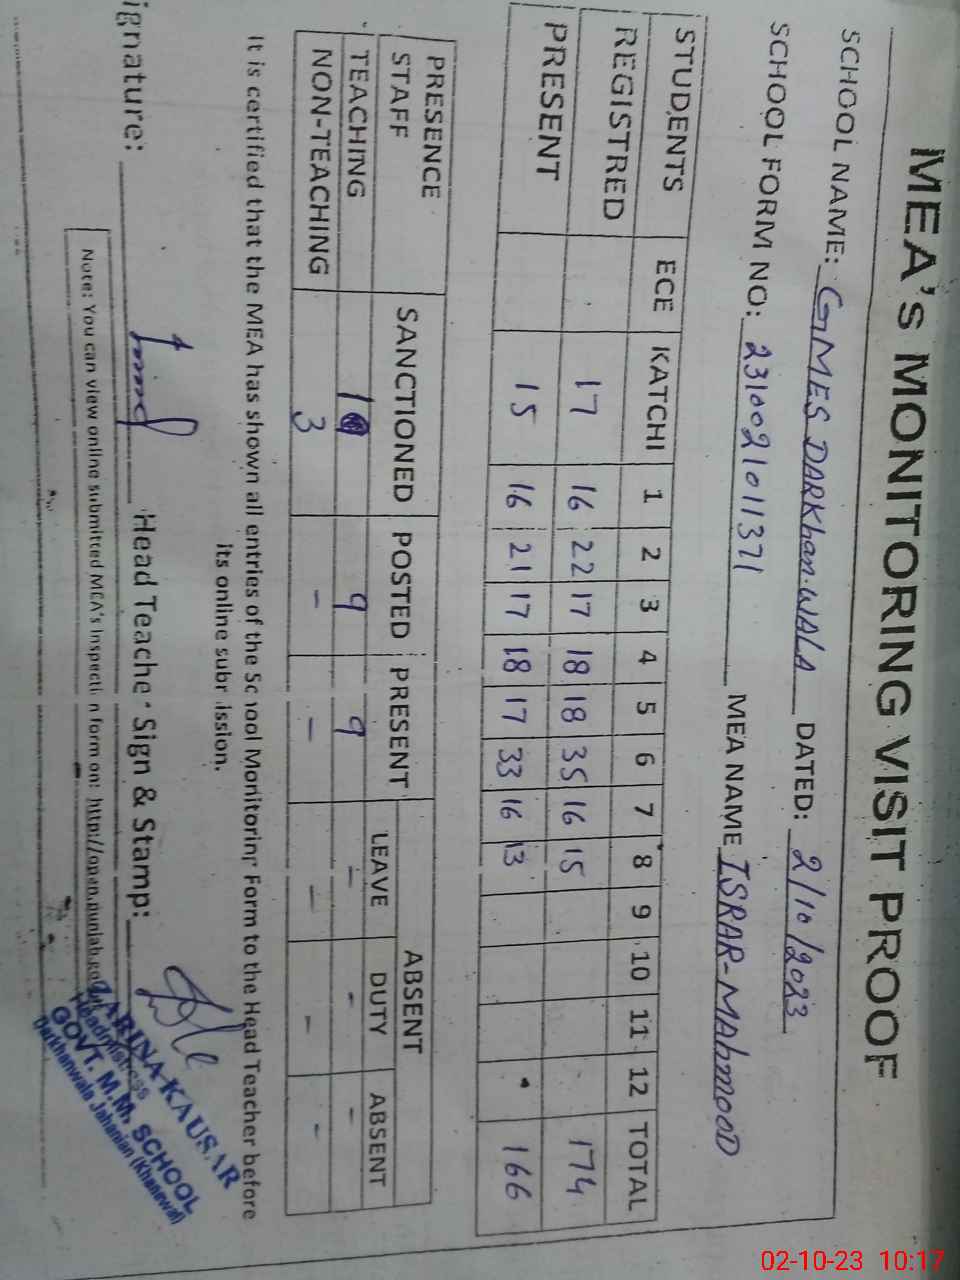 MEA's MONITORING VISIT PROOF
SCHOOL NAME: GMES DARKhan.WALA DATED: 2/10/2023
SCHOOL FORM NO: 23100210 11371 MEA NAME ISRAR-MAhmOOD
STUDENTS ECE KATCHI 1 2 3 4 5 6 7 8 9 10 11 12 TOTAL
REGISTRED 17 16 22 17 18 18 35 16 15 174
PRESENT 15 16 21 17 18 17 33 16 13 166
PRESENCE STAFF SANCTIONED POSTED PRESENT ABSENT
LEAVE DUTY ABSENT
TEACHING 9 9 - - -
NON-TEACHING 3 - - - - -
It is certified that the MEA has shown all entries of the School Monitoring Form to the Head Teacher before
its online submission.
ignature: Head Teacher Sign & Stamp:
ZARINA KAUSAR
Headmistress
GOVT. M.M. SCHOOL
Darkhanwala Jahanian (Khanewal)
Note: You can view online submitted MEA's Inspection form on: http://open.punjab.gov
02-10-23 10:17